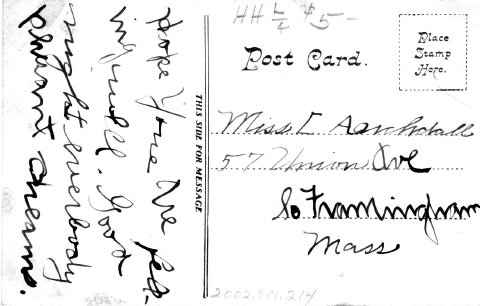 HH L/4 $5-
Post Card.
Place
Stamp
Here.
THIS SIDE FOR MESSAGE
Hope your are fee-
ing well. Good
night everbody
plesant dreams.
Miss L Aarchdall
57 Union Ave
So Framingham
Mass
2002.701.214